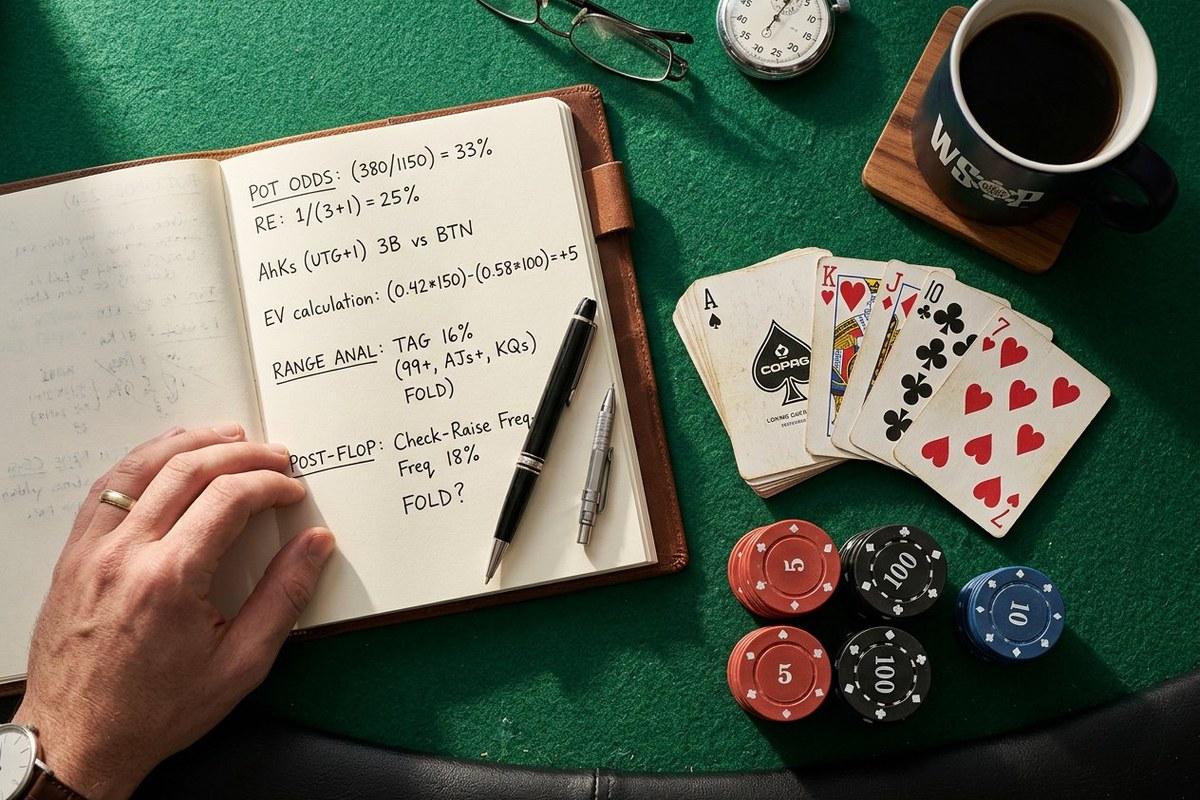 POT ODDS: (380/1150) = 33%
RE: 1/(3+1) = 25%
AhKs (UTG+1) 3B vs BTN
EV calculation: (0.42*150)-(0.58*100)=+5
RANGE ANAL: TAG 16%
(99+, AJs+, KQs)
FOLD)
POST-FLOP: Check-Raise Freq
Freq 18%
FOLD?
WSOP
A
COPAG
K
J
10
7
7
5
100
10
5
100